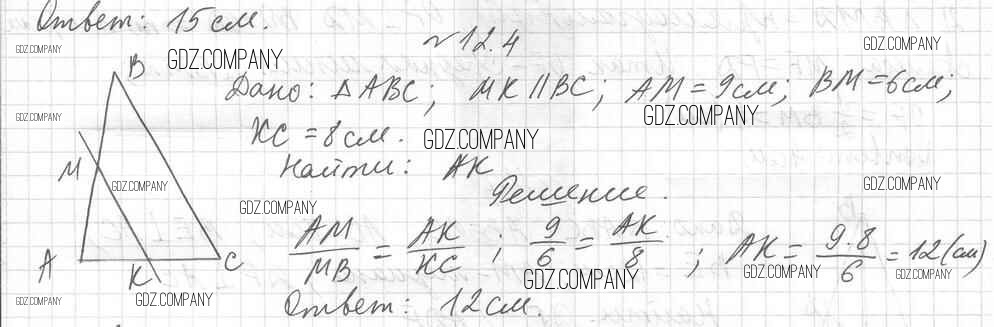 Ответ: 15 см.
№12.4
GDZ.COMPANY
GDZ.COMPANY
GDZ.COMPANY
B
Дано: △ABC; MK||BC; AM=9см; BM=6см;
GDZ.COMPANY
GDZ.COMPANY
KC=8см.
GDZ.COMPANY
M
Найти: AK
GDZ.COMPANY
GDZ.COMPANY
Решение.
GDZ.COMPANY
AM/MB = AK/KC; 9/6 = AK/8; AK = 9·8/6 = 12(см)
A
K
C
GDZ.COMPANY
GDZ.COMPANY
GDZ.COMPANY
GDZ.COMPANY
GDZ.COMPANY
Ответ: 12см.